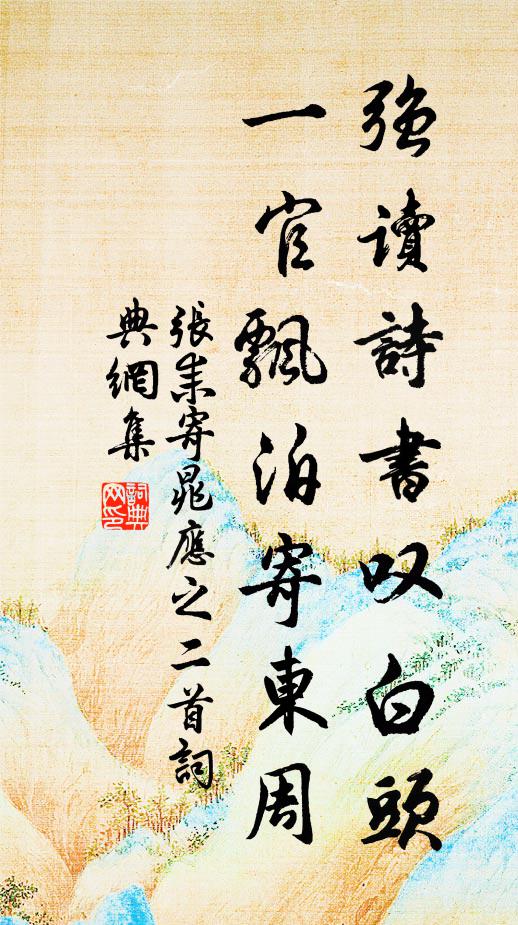 强讀詩書叹白頭
一官飄泊寄東周
張耒寄晁應之二首詞
典網集
詞典
网印